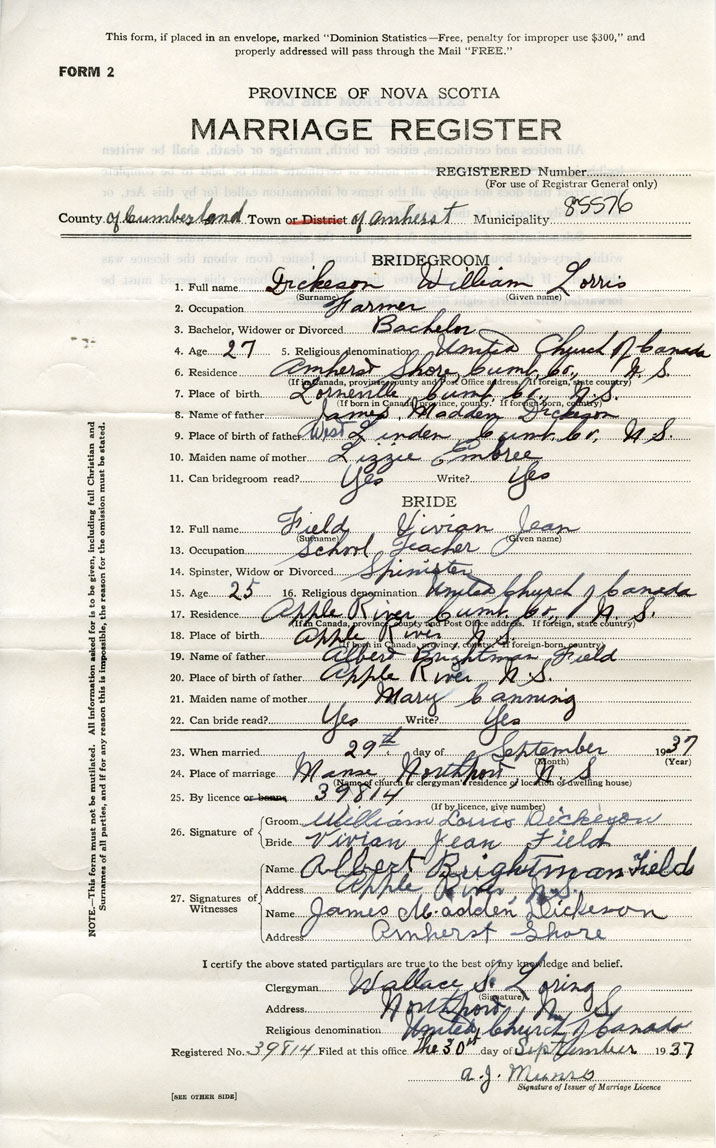 This form, if placed in an envelope, marked "Dominion Statistics—Free, penalty for improper use $300," and
properly addressed will pass through the Mail "FREE."
FORM 2
PROVINCE OF NOVA SCOTIA
MARRIAGE REGISTER
REGISTERED Number
(For use of Registrar General only)
County of Cumberland Town or District of Amherst Municipality 85576
BRIDEGROOM
1. Full name Dickeson William Lorris
(Surname) (Given name)
2. Occupation Farmer
3. Bachelor, Widower or Divorced Bachelor
4. Age 27 5. Religious denomination United Church of Canada
6. Residence Amherst Shore, Cumb. Co., N. S.
(If in Canada, province, county and Post Office address. If foreign, state country)
7. Place of birth Lorneville Cumb. Co., N. S.
(If born in Canada, province, county. If foreign-born, country)
8. Name of father James Madden Dickeson
9. Place of birth of father West Linden Cumb. Co, N S.
10. Maiden name of mother Lizzie Embree
11. Can bridegroom read? Yes Write? Yes
BRIDE
12. Full name Field Vivian Jean
(Surname) (Given name)
13. Occupation School Teacher
14. Spinster, Widow or Divorced Spinster
15. Age 25 16. Religious denomination United Church of Canada
17. Residence Apple River Cumb. Co., N. S.
(If in Canada, province, county and Post Office address. If foreign, state country)
18. Place of birth Apple River N. S.
(If born in Canada, province, county. If foreign-born, country)
19. Name of father Albert Brightman Field
20. Place of birth of father Apple River N. S.
21. Maiden name of mother Mary Canning
22. Can bride read? Yes Write? Yes
23. When married 29th day of September 1937
(Month) (Year)
24. Place of marriage Manse Northport N. S
(Name of church or clergyman's residence or location of dwelling house)
25. By licence or banns 39814
(If by licence, give number)
26. Signature of Groom William Lorris Dickeson
Bride Vivian Jean Field
27. Signatures of Witnesses
Name Albert Brightman Fields
Address Apple River, N.S.
Name James Madden Dickeson
Address Amherst Shore
I certify the above stated particulars are true to the best of my knowledge and belief.
Clergyman Wallace S. Loring
(Signature)
Address Northport N. S.
Religious denomination United Church of Canada
Registered No. 39814 Filed at this office the 30th day of September 1937
A. J. Munro
Signature of Issuer of Marriage Licence
[SEE OTHER SIDE]
NOTE.—This form must not be mutilated. All information asked for is to be given, including full Christian and
Surnames of all parties, and if for any reason this is impossible, the reason for the omission must be stated.